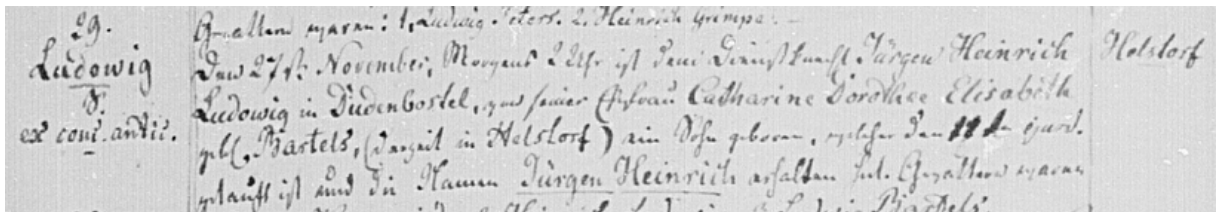 29.
Ludowig
S.
ex conj. antic.
Gevattern waren: 1, Ludwig Peters. 2. Heinrich Grimpe.
Den 27st. November, Morgens 2 Uhr ist dem Dienstknecht Jürgen Heinrich
Ludowig in Dudenbostel, von seiner Ehefrau Catharine Dorothee Elisabeth
geb. Bartels, (derzeit in Helstorf) ein Sohn geboren, welcher den
getauft ist und die Namen Jürgen Heinrich erhalten hat. Gevattern waren
Heinrich Bartels
Helstorf